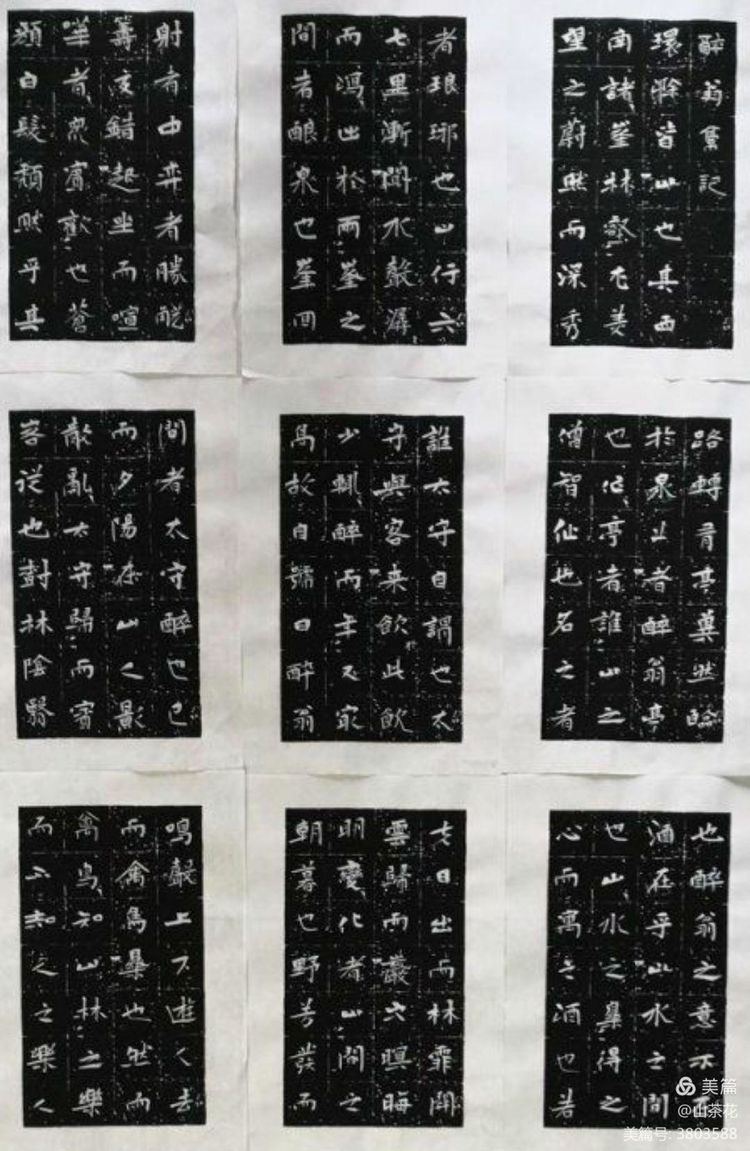 醉翁亭記
環滁皆山也其西
南諸峯林壑尤美
望之蔚然而深秀
者琅琊也山行六
七里漸聞水聲潺
而瀉出於兩峯之
間者釀泉也峯回
路轉有亭翼然臨
於泉上者醉翁亭
也作亭者誰山之
僧智仙也名之者
誰太守自謂也太
守與客來飲於此飲
少輒醉而年又最
高故自號曰醉翁
也醉翁之意不在
酒在乎山水之間
也山水之樂得之
心而寓之酒也若
夫日出而林霏開
雲歸而巖穴暝晦
明變化者山間之
朝暮也野芳發而
射者中弈者勝觥
籌交錯起坐而喧
嘩者衆賓歡也蒼
顏白髮頹然乎其
間者太守醉也已
而夕陽在山人影
散亂太守歸而賓
客從也樹林陰翳
鳴聲上下遊人去
而禽鳥樂也然而
禽鳥知山林之樂
而不知人之樂人
美篇
@山茶花
美篇号: 3803588